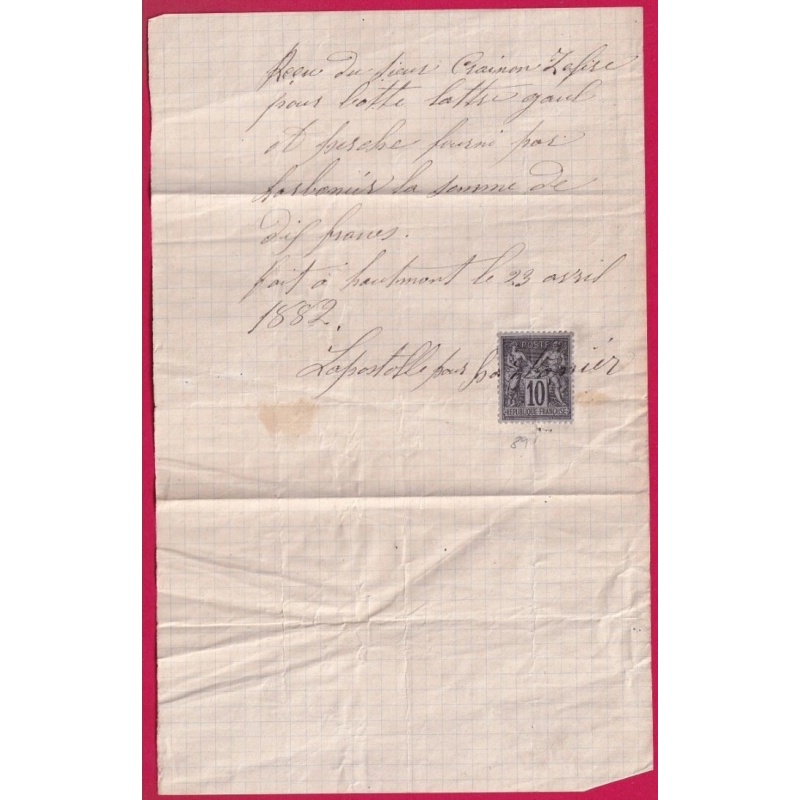 Reçu du sieur Crainon Zefire
pour botte lattse gaul
et perche fourni par
la somme de
dix francs.
fait à hautmont le 23 avril
1882.
Lapostolle pour
POSTES
10
RÉPUBLIQUE FRANÇAISE
89